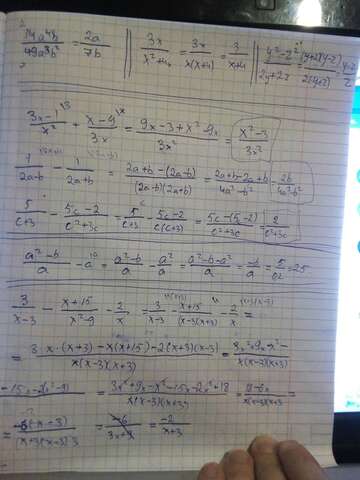 14a⁴b / 49a³b² = 2a / 7b || 3x / x²+4x = 3x / x(x+4) = 3 / x+4 || y²-z² / 2y+2z = (y+z)(y-z) / 2(y+z) = y-z / 2
3x-1 / x² + x-9 / 3x = 9x-3+x²-9x / 3x² = x²-3 / 3x²
1 / 2a-b - 1 / 2a+b = 2a+b-(2a-b) / (2a-b)(2a+b) = 2a+b-2a+b / 4a²-b² = 2b / 4a²-b²
5 / c+3 - 5c-2 / c²+3c = 5 / c+3 - 5c-2 / c(c+3) = 5c-(5c-2) / c²+3c = 2 / c²+3c
a²-b / a - a = a²-b / a - a² / a = a²-b-a² / a = -b / a = 5 / 0,2 = 25
3 / x-3 - x+15 / x²-9 - 2 / x = 3 / x-3 - x+15 / (x-3)(x+3) - 2 / x =
= 3x·(x+3)-x(x+15)-2(x+3)(x-3) / x(x-3)(x+3) = 3x²+9x-x²-
-15x-2(x²-9) = 3x²+9x-x²-15x-2x²+18 / x(x-3)(x+3) = 18-6x / x(x-3)(x+3) =
= -6(x-3) / (x+3)(x-3)3 = -6 / 3x+9 = -2 / x+3